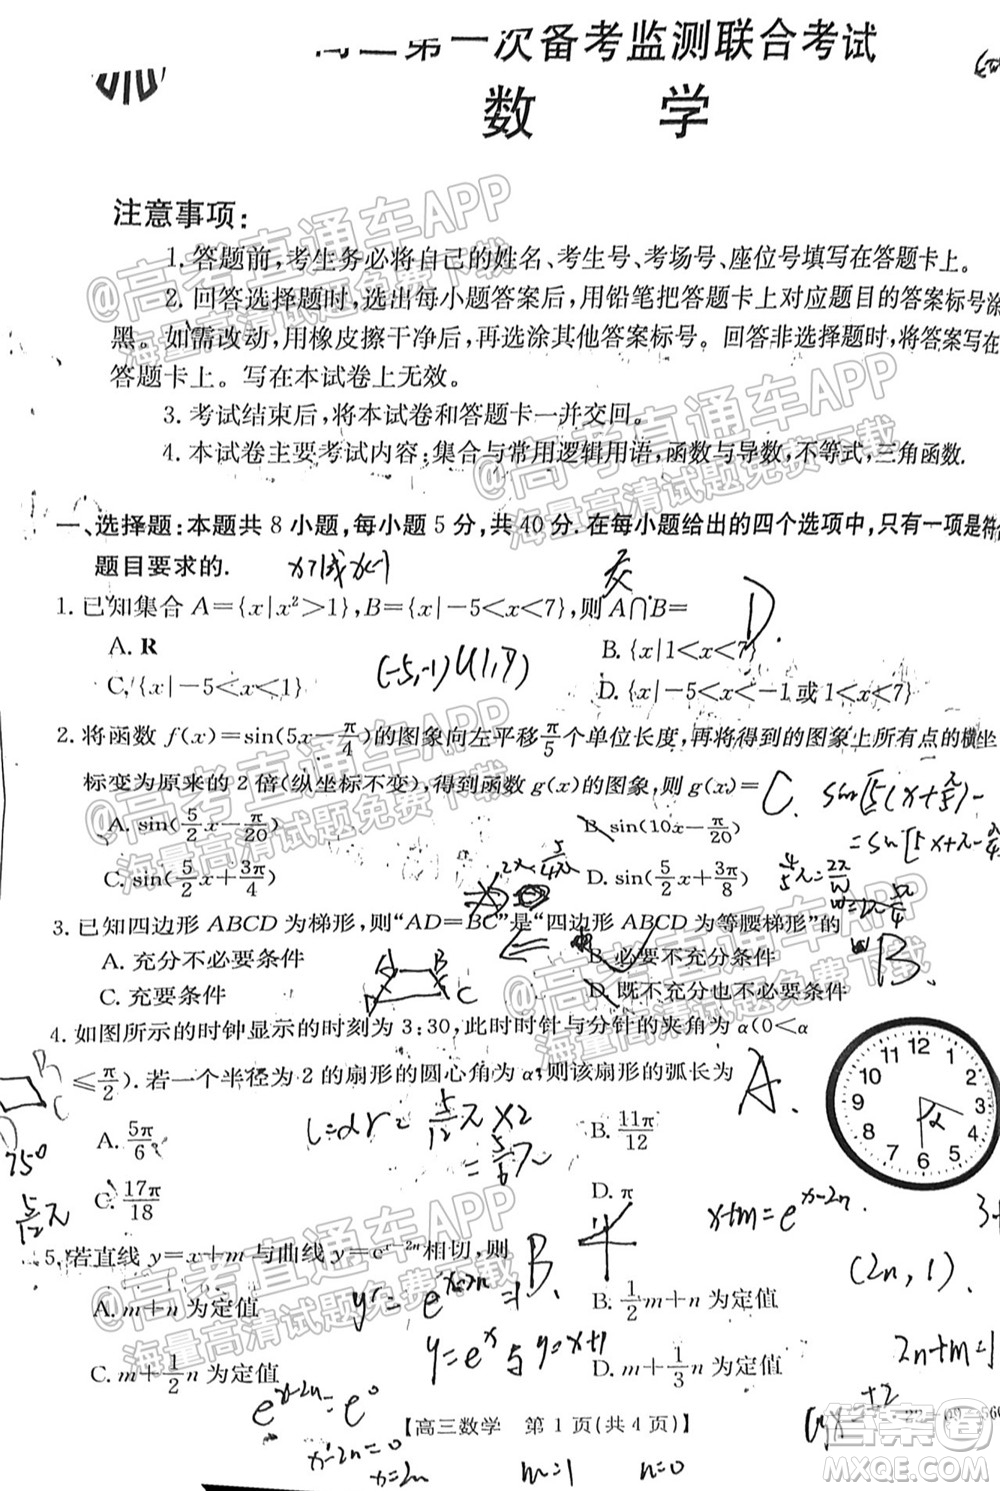 高三第一次备考监测联合考试
数 学
注意事项：
1. 答题前，考生务必将自己的姓名、考生号、考场号、座位号填写在答题卡上。
2. 回答选择题时，选出每小题答案后，用铅笔把答题卡上对应题目的答案标号涂
黑。如需改动，用橡皮擦干净后，再选涂其他答案标号。回答非选择题时，将答案写在
答题卡上。写在本试卷上无效。
3. 考试结束后，将本试卷和答题卡一并交回。
4. 本试卷主要考试内容：集合与常用逻辑用语，函数与导数，不等式，三角函数.
一、选择题：本题共 8 小题，每小题 5 分，共 40 分. 在每小题给出的四个选项中，只有一项是符
题目要求的. x>1或x<-1 交
1. 已知集合 A={x|x²>1}，B={x|-5<x<7}，则 A∩B= D.
A. R B. {x|1<x<7}
C. {x|-5<x<1} (-5,-1)∪(1,7) D. {x|-5<x<-1 或 1<x<7}
2. 将函数 f(x)=sin(5x-π/4)的图象向左平移π/5个单位长度，再将得到的图象上所有点的横坐
标变为原来的 2 倍(纵坐标不变)，得到函数 g(x)的图象，则 g(x)= C
A. sin(5/2x-π/20) B. sin(10x-π/20)
C. sin(5/2x+3π/4) D. sin(5/2x+3π/8)
3. 已知四边形 ABCD 为梯形，则“AD=BC”是“四边形 ABCD 为等腰梯形”的 B.
A. 充分不必要条件 B. 必要不充分条件
C. 充要条件 D. 既不充分也不必要条件
4. 如图所示的时钟显示的时刻为 3:30，此时时针与分针的夹角为 α(0<α
≤π/2). 若一个半径为 2 的扇形的圆心角为 α，则该扇形的弧长为 A.
A. 5π/6 l=αr=5/12π×2 B. 11π/12
=5/6π
C. 17π/18 D. π
75°
5/12π
12 1 2 3 4 5 6 7 8 9 10 11
α
x+m=e^(x-2n)
5. 若直线 y=x+m 与曲线 y=e^(x-2n)相切，则 B
(2n,1).
A. m+n 为定值 y'=e^(x-2n)=1 B. 1/2m+n 为定值
y=e^x与y=x+1
2n+m=1
C. m+1/2n 为定值 D. m+1/3n 为定值
e^(x-2n)=e^0
【高三数学 第 1 页(共 4 页)】
x-2n=0
x=2n
m=1 n=0
@高考直通车APP
海量高清试题免费下载
答案圈
MXQE.COM